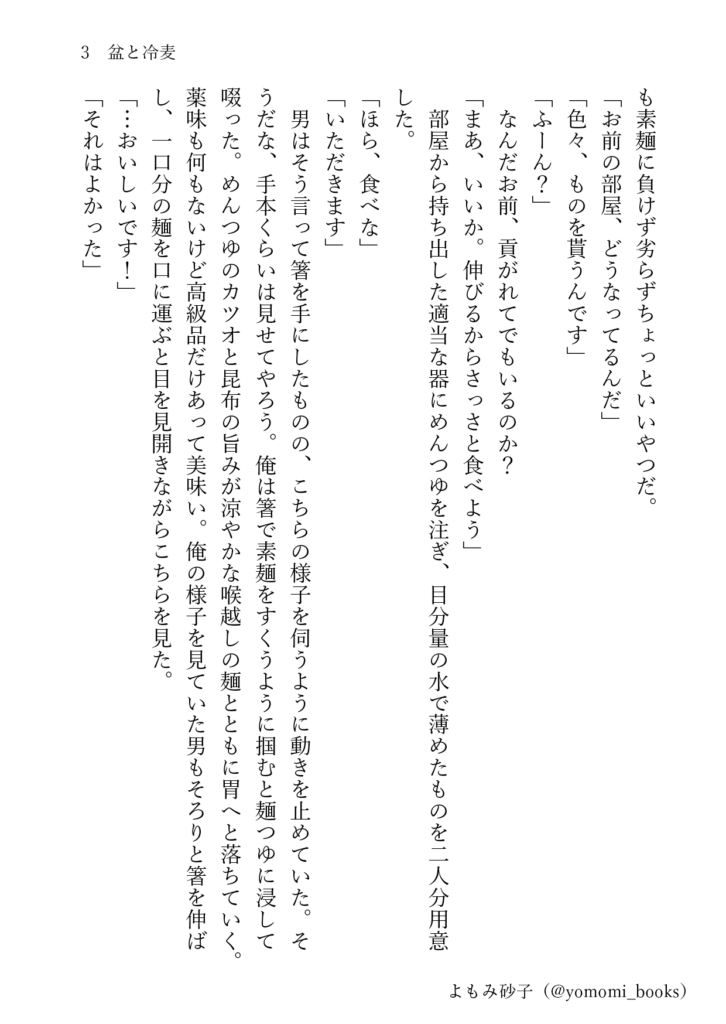 3　盆と冷麦
も素麺に負けず劣らずちょっといいやつだ。
「お前の部屋、どうなってるんだ」
「色々、ものを貰うんです」
「ふーん？」
　なんだお前、貢がれてでもいるのか？
「まあ、いいか。伸びるからさっさと食べよう」
　部屋から持ち出した適当な器にめんつゆを注ぎ、目分量の水で薄めたものを二人分用意
した。
「ほら、食べな」
「いただきます」
　男はそう言って箸を手にしたものの、こちらの様子を伺うように動きを止めていた。そ
うだな、手本くらいは見せてやろう。俺は箸で素麺をすくうように掴むと麺つゆに浸して
啜った。めんつゆのカツオと昆布の旨みが涼やかな喉越しの麺とともに胃へと落ちていく。
薬味も何もないけど高級品だけあって美味い。俺の様子を見ていた男もそろりと箸を伸ば
し、一口分の麺を口に運ぶと目を見開きながらこちらを見た。
「…おいしいです！」
「それはよかった」
よもみ砂子（@yomomi_books）